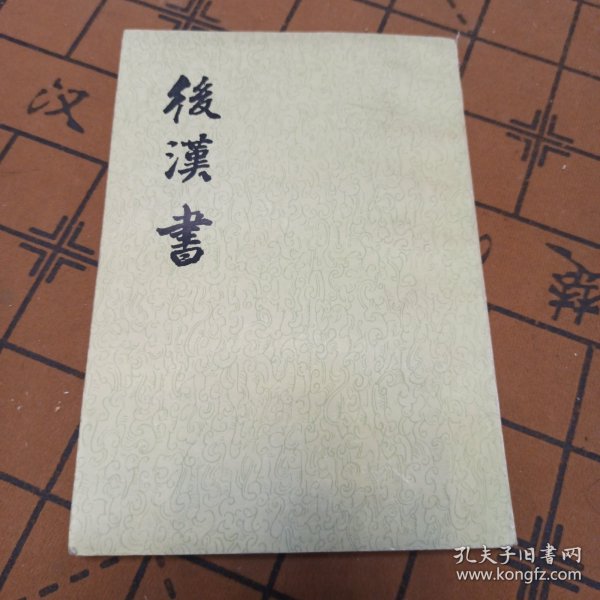 後漢書
汉
楚
孔夫子旧書网
www.kongfz.com